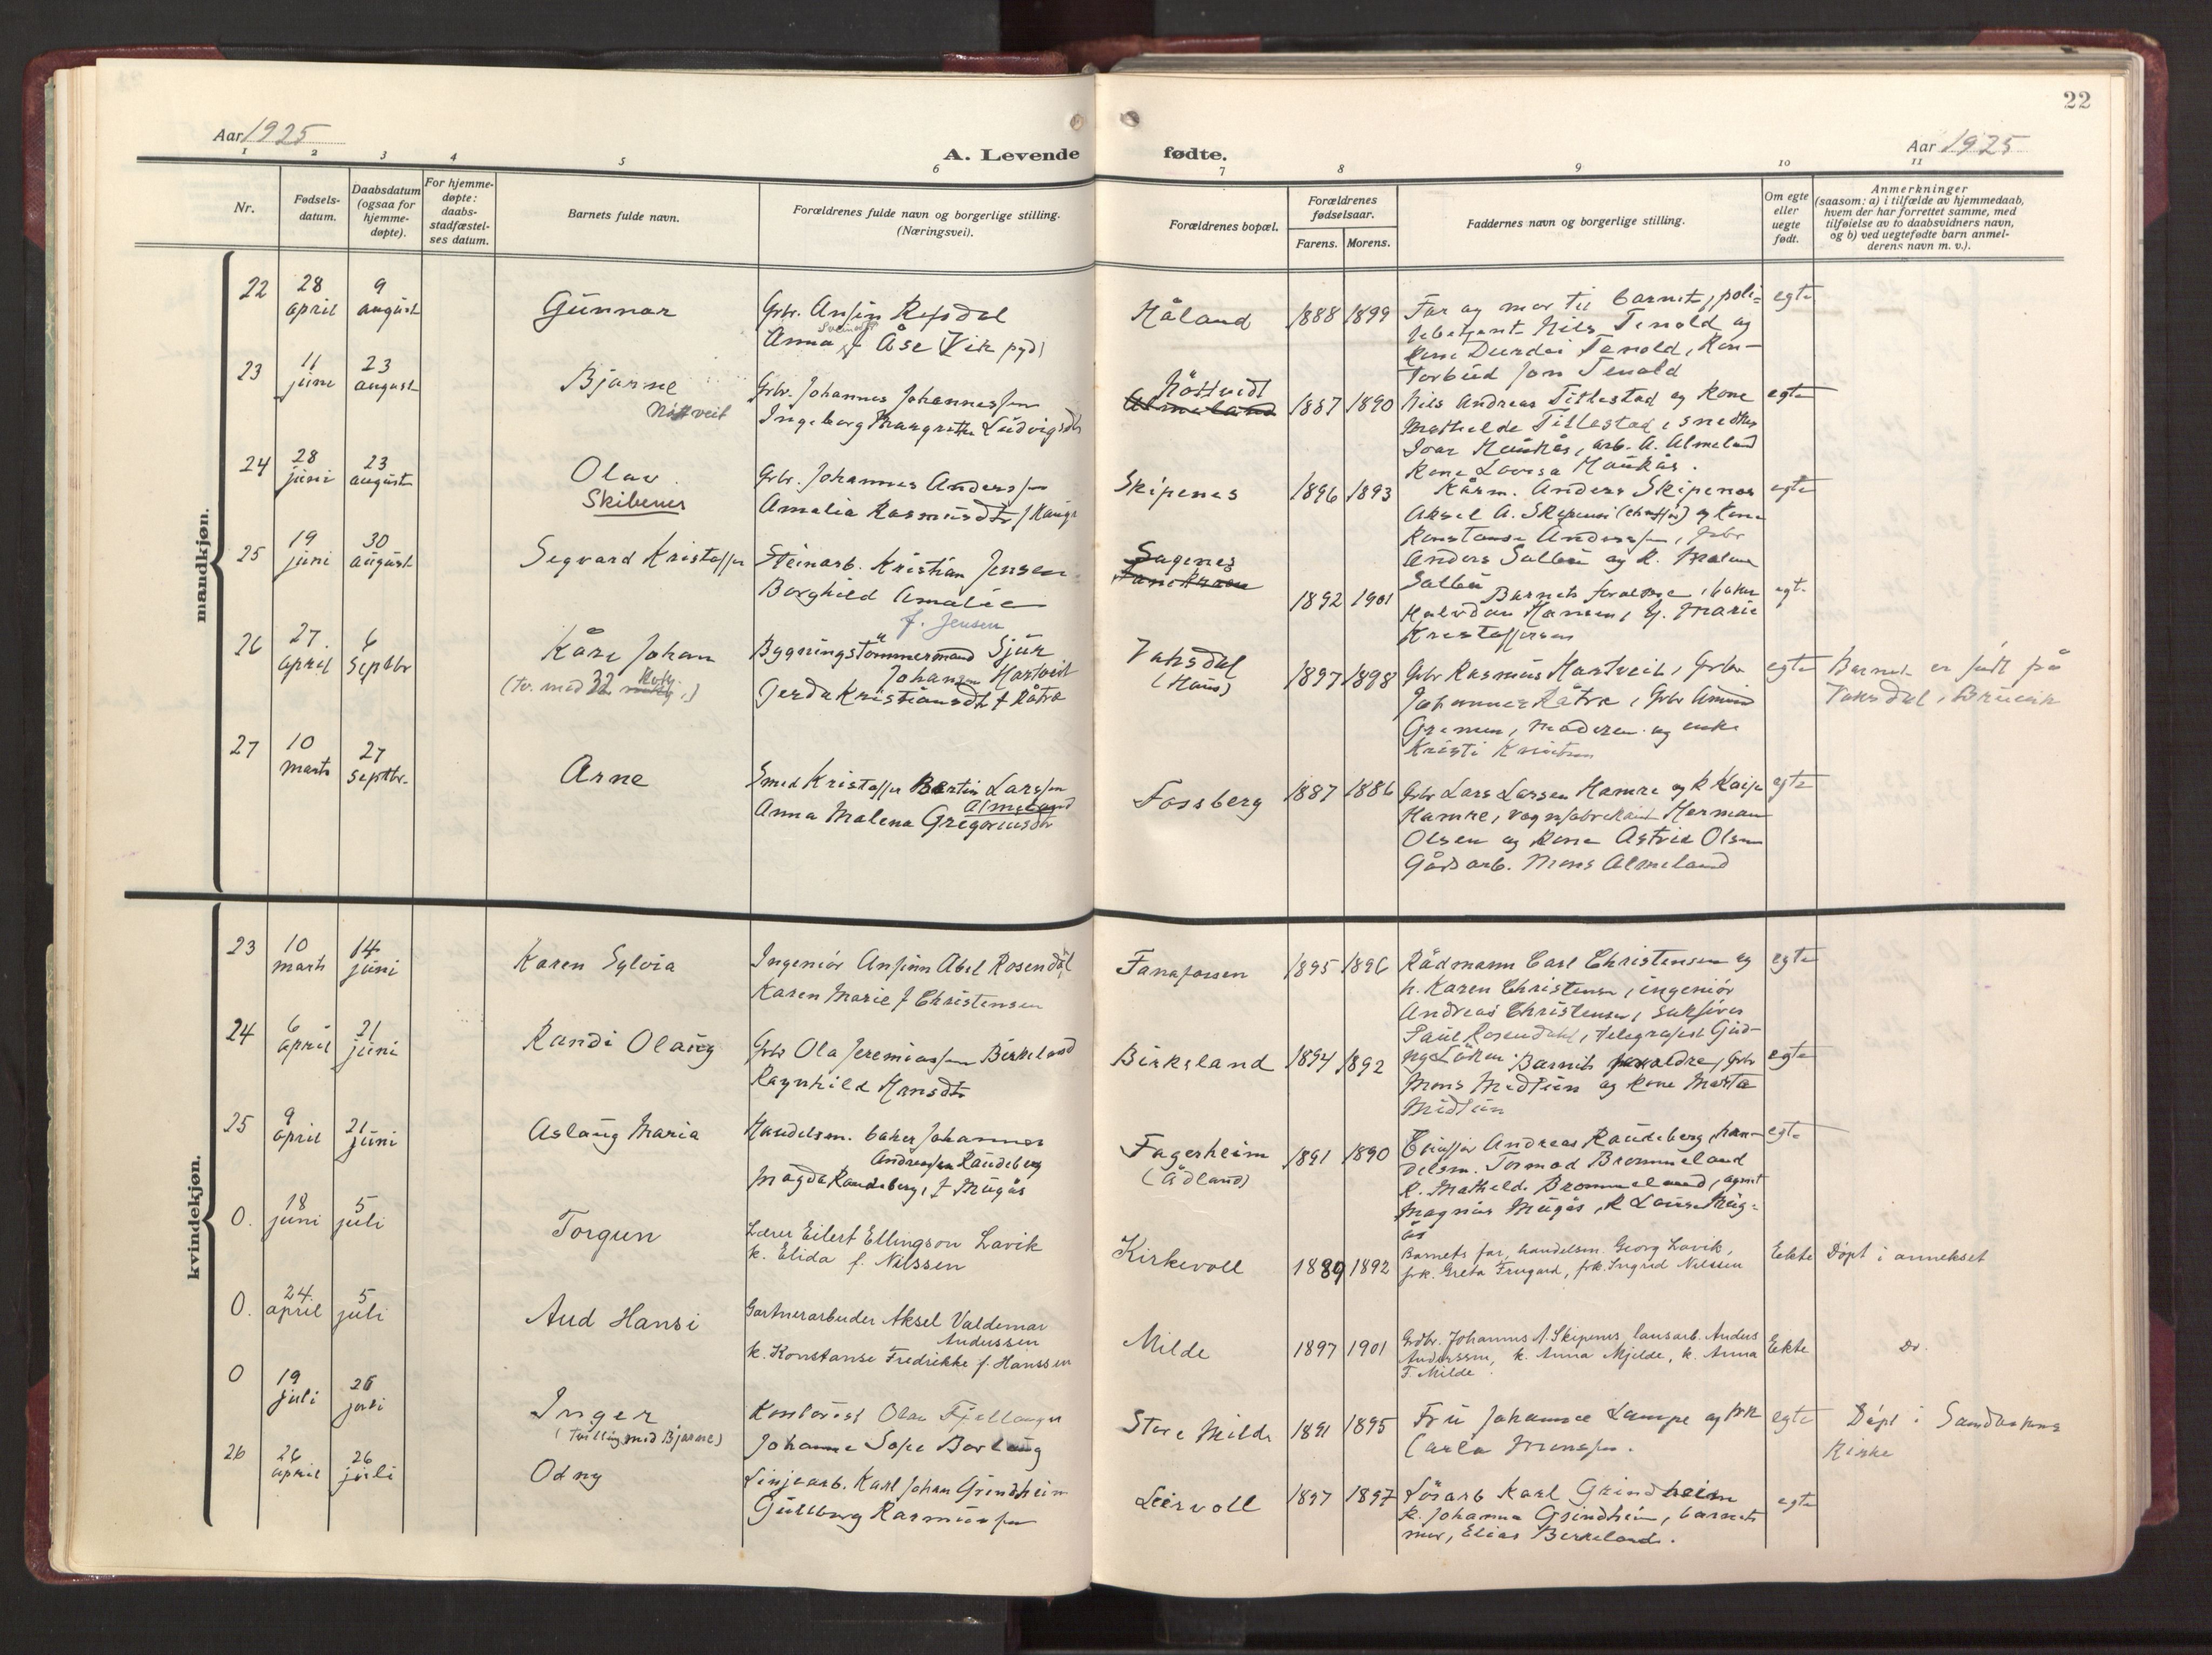 22
Aar 1925
A. Levende fødte.
Aar 1925
1 2 3 4 5 6 7 8 9 10 11
Nr.
Fødsels-
datum.
Daabsdatum
(ogsaa for
hjemme-
døpte).
For hjemme-
døpte:
daabs-
stadfæstel-
ses datum.
Barnets fulde navn.
Forældrenes fulde navn og borgerlige stilling.
(Næringsvei).
Forældrenes bopæl.
Forældrenes
fødselsaar.
Farens. Morens.
Faddernes navn og borgerlige stilling.
Om egte
eller
uegte
født.
Anmerkninger
(saasom: a) i tilfælde av hjemmedaab,
hvem der har forrettet samme, med
tilføielse av to daabsvidners navn,
og b) ved uegtefødte barn anmel-
derens navn m. v.).
mandkjøn.
22
28
april
9
august
Gunnar
Grbr. Ansin Refsdal
Anna f Åse (Vik
Håland
1888 1899
Far og mor til barnet, poli=
Nils Tenold og
Kone Tenold, Kon-
torbud Jon Tenold
egte
23
11
juni
23
august
Bjarne
Nöttveit
Grbr. Johannes Johannessen
Ingeborg Margrethe Ludvigsdtr
Nöttveidt
Almeland
1887 1890
Nils Andreas Titlestad og Kone
Mathilde Titlestad, snedker
Ivar Haukås, arb. A. Almeland
Kone Lovisa Haukås.
egte
24
28
juni
23
august
Olav
Skibenes
Grbr. Johannes Anderssen
Amalia Rasmusdtr f Hauge
Skipenes
1896 1893
Kårm. Anders Skipenes
Aksel A. Skipenes (chauffør) og Kone
Konstanse Anderssen, Grbr
Anders Sælen og K. Malene
Sælen
egte
25
19
juni
30
august
Segvard Kristoffer
Steinarb. Kristian Jensen
Borghild Amalie
f. Jensen
Sagenes
1892 1901
Barnets foreldre, baker
Halvdan Hansen, Marie
Kristoffersen
egte
26
27.
april
6
Septbr
Kåre Johan
(tv. med 32 )
Bygningstömmermand Sjur
Johansen Hartveit
Gerda Kristiansdtr f Råtræ
Vaksdal
(Haus)
1897 1898
Grbr Rasmus Hartveit, Grbr
Johannes Råtræ, Grbr Amund
Gremen, Moderen og enke
Kristi
egte
Barnet er født på
Vaksdal, Bruvik
27
10
marts
27
septbr.
Arne
Smed Kristoffer Bertin Larssen
Almeland
Anna Malena Gregoriusdtr
Fossberg
1887 1886
Grbr Lars Larsen Hamre og K Kaisa
Hamre, vognfabrikant Herman
Olsen og Kone Astrid Olsen
Gårdsarb. Mons Almeland
egte
kvindekjøn.
23
10
marts
14
juni
Karen Sylvia
Ingeniör Ansinn Abel Rosendal
Karen Marie f Christensen
Fanafossen
1895 1896
Rådmann Carl Christensen og
h. Karen Christensen, ingeniör
Andreas Christensen, Sakfører
Paul Rosendahl, telegrafist Gud-
Löken
egte
24
6
april
21
juni
Randi Olaug
Grbr Ola Jeremiassen Birkeland
Ragnhild Hansdtr
Birkeland
1894 1892
Barnets foreldre, Grbr
Mons Midttun og Kone Marta
Midttun
egte
25
9
april
21
juni
Aslaug Maria
Handelsm. baker Johannes
Andreassen Raudeberg
Magda Raudeberg, f Mugås
Fagerheim
(Ådland)
1891 1890
Andreas Raudeberg, han-
delsm. Tormod Brommeland
K. Mathilde Brommeland, agent
Magnus Mugås, K Louise Mug=
ås
egte
0.
18
juni
5
juli
Torgun
Lærer Eilert Ellingson Lavik
k. Elida f. Nilssen
Kirkevoll
1889 1892
Barnets far, handelsm. Georg Lavik,
frk. Greta Frugard, frk. Ingrid Nilssen
Ekte
Döpt i annekset
0.
24.
april
5
juli
Aud Hansi
Gartnerarbeider Aksel Valdemar
Anderssen
k. Konstanse Fredrikke f. Hanssen
Milde
1897 1901
Grdbr. Johannes A. Skipenes, lausarb. Anders
Anderssen, k. Anna Mjelde, k. Anna
F. Milde
Ekte
Do.
0
19
juli
26
juli
Inger
(tvilling med Bjarne)
Kontorist Olav Fjellanger
Johanne Sofie Borlaug
Store Milde
1891 1895
Fru Johanne Lampe og frk
Carla Monssen.
egte
Döpt i Sandvikens
Kirke
26
26
april
26
juli
Odny
Linjearb. Karl Johan Grindheim
Gullborg Rasmussen
Leirvoll
1897 1897
Lösarb Karl Grindheim
K. Johanna Grindheim, barnets
mor, Elias Birkeland.
egte